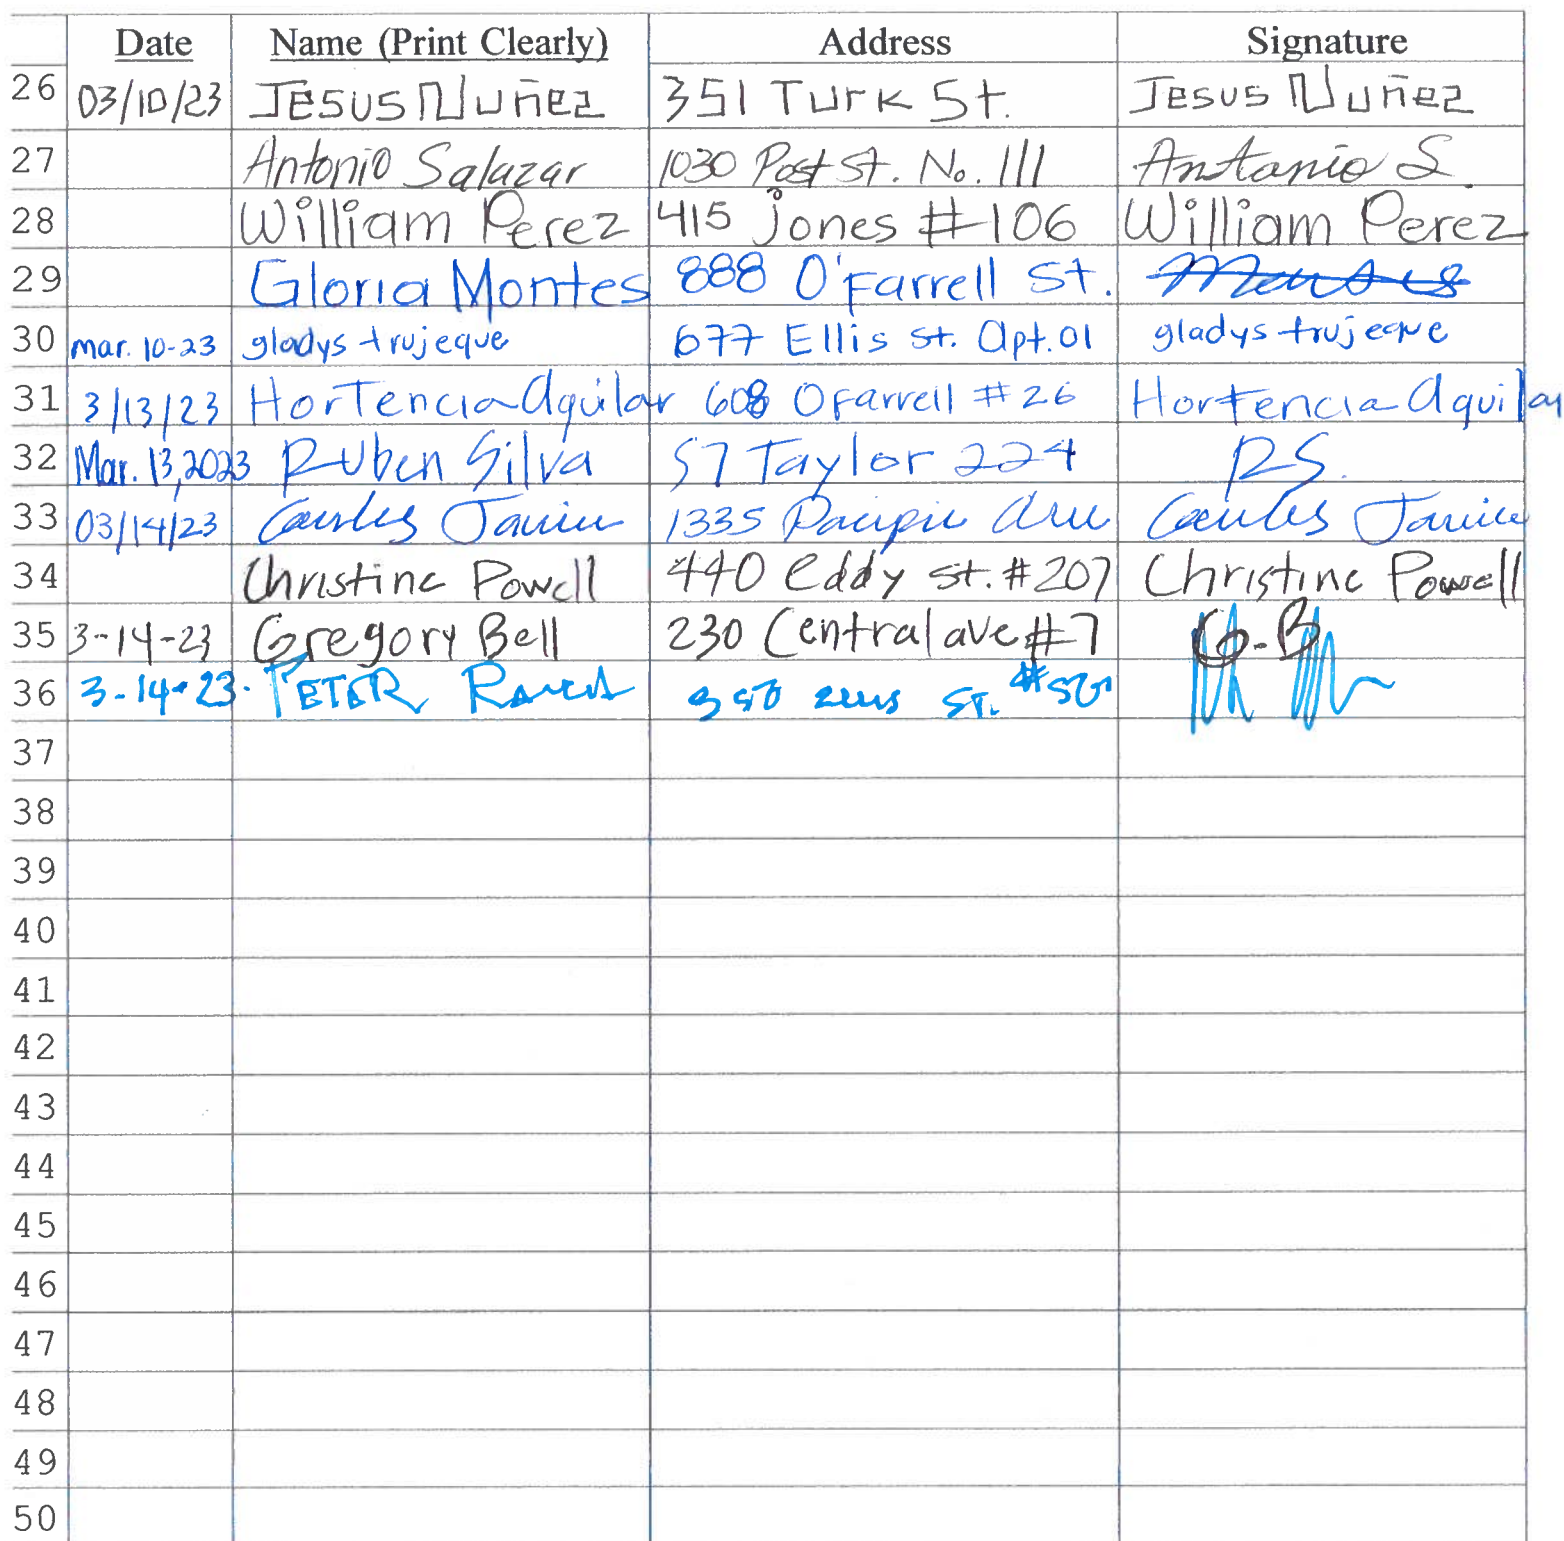 Date Name (Print Clearly) Address Signature
26 03/10/23 Jesus Nuñez 351 Turk St. Jesus Nuñez
27 Antonio Salazar 1030 Post St. No. 111 Antonio S.
28 William Perez 415 jones #106 William Perez
29 Gloria Montes 888 O'Farrell St. Montes
30 mar. 10-23 gladys trujeque 677 Ellis St. Apt. 01 gladys trujeque
31 3/13/23 HorTencia Aguilar 608 OFarrell #26 Hortencia Aguilar
32 Mar. 13, 2023 Ruben Silva 57 Taylor 224 R.S.
33 03/14/23 Carlos 1335 Pacific Ave Carlos
34 Christine Powell 440 Eddy St. #207 Christine Powell
35 3-14-23 Gregory Bell 230 Central ave #7 G.B
36 3-14-23. PETER ST.
37
38
39
40
41
42
43
44
45
46
47
48
49
50